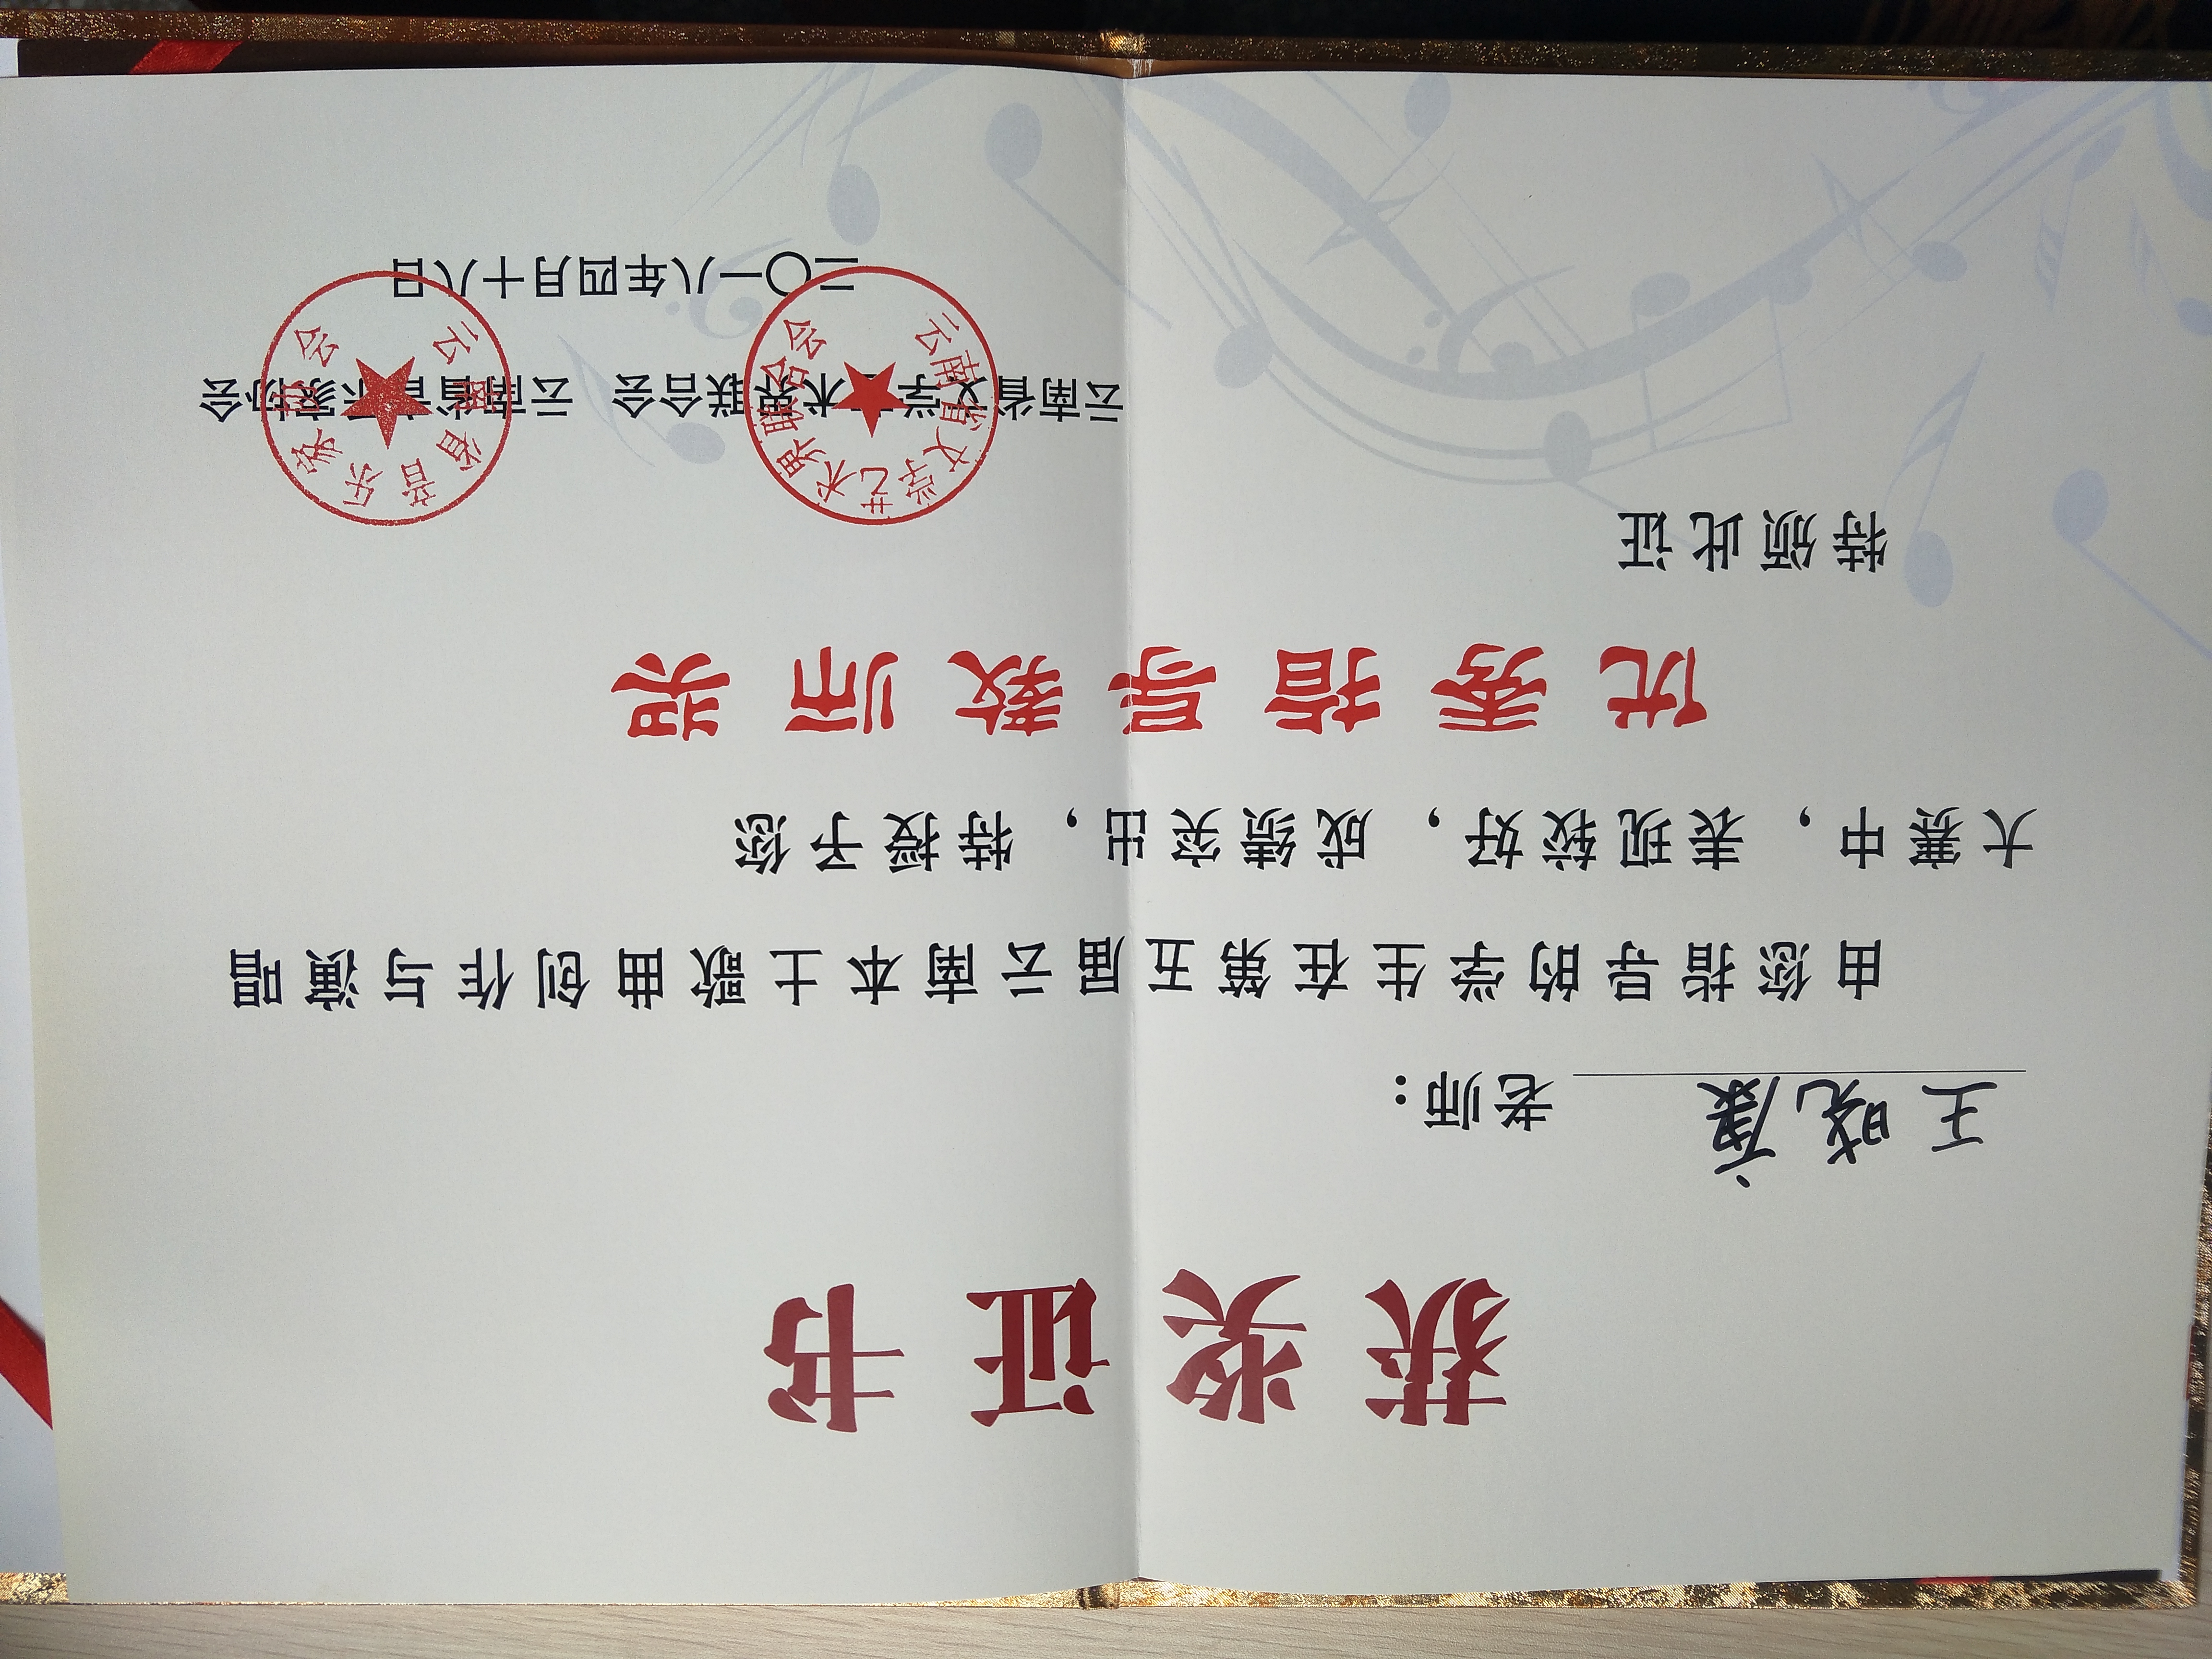 获奖证书
王晓康 老师：
由您指导的学生在第五届云南本土歌曲创作与演唱
大赛中，表现较好，成绩突出，特授予您
优秀指导教师奖
特颁此证
云南省文学艺术界联合会 云南省音乐家协会
二〇一八年四月十八日
云南省文学艺术界联合会
云南省音乐家协会